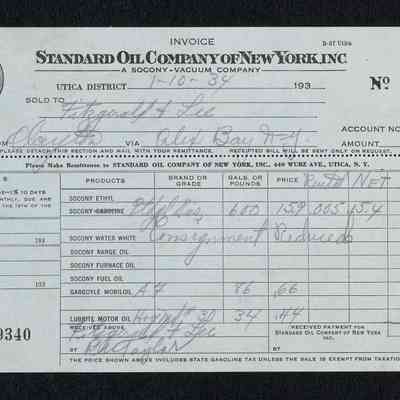 INVOICE
STANDARD OIL COMPANY OF NEW YORK, INC
A SOCONY-VACUUM COMPANY
UTICA DISTRICT 1-10-34 193 No
SOLD TO Fitzgerald & Lee
VIA Old Bay ACCOUNT NO
PLEASE DETACH THIS SECTION AND MAIL WITH REMITTANCE. RECEIPTED BILL WILL BE SENT ONLY ON REQUEST. AMOUNT
Please Make Remittance to STANDARD OIL COMPANY OF NEW YORK, INC., UTICA, N. Y.
PRODUCTS BRAND OR GRADE GALS. OR POUNDS PRICE NET
15 10 DAYS
MONTHLY, DUE AND
THE 15TH OF THE
SOCONY ETHYL
SOCONY GASOLINE 600 159 .005 15.4
193
SOCONY WATER WHITE Consignment Reduced
SOCONY RANGE OIL
SOCONY FURNACE OIL
SOCONY FUEL OIL
193
GARGOYLE MOBILOIL A F 86 .66
LUBRITE MOTOR OIL 30 34 .44
9340
RECEIVED ABOVE Fitzgerald & Lee
RECEIVED PAYMENT FOR
STANDARD OIL COMPANY OF NEW YORK
INC.
BY Taylor
THE PRICE SHOWN ABOVE INCLUDES STATE GASOLINE TAX UNLESS THE SALE IS EXEMPT FROM TAXATION